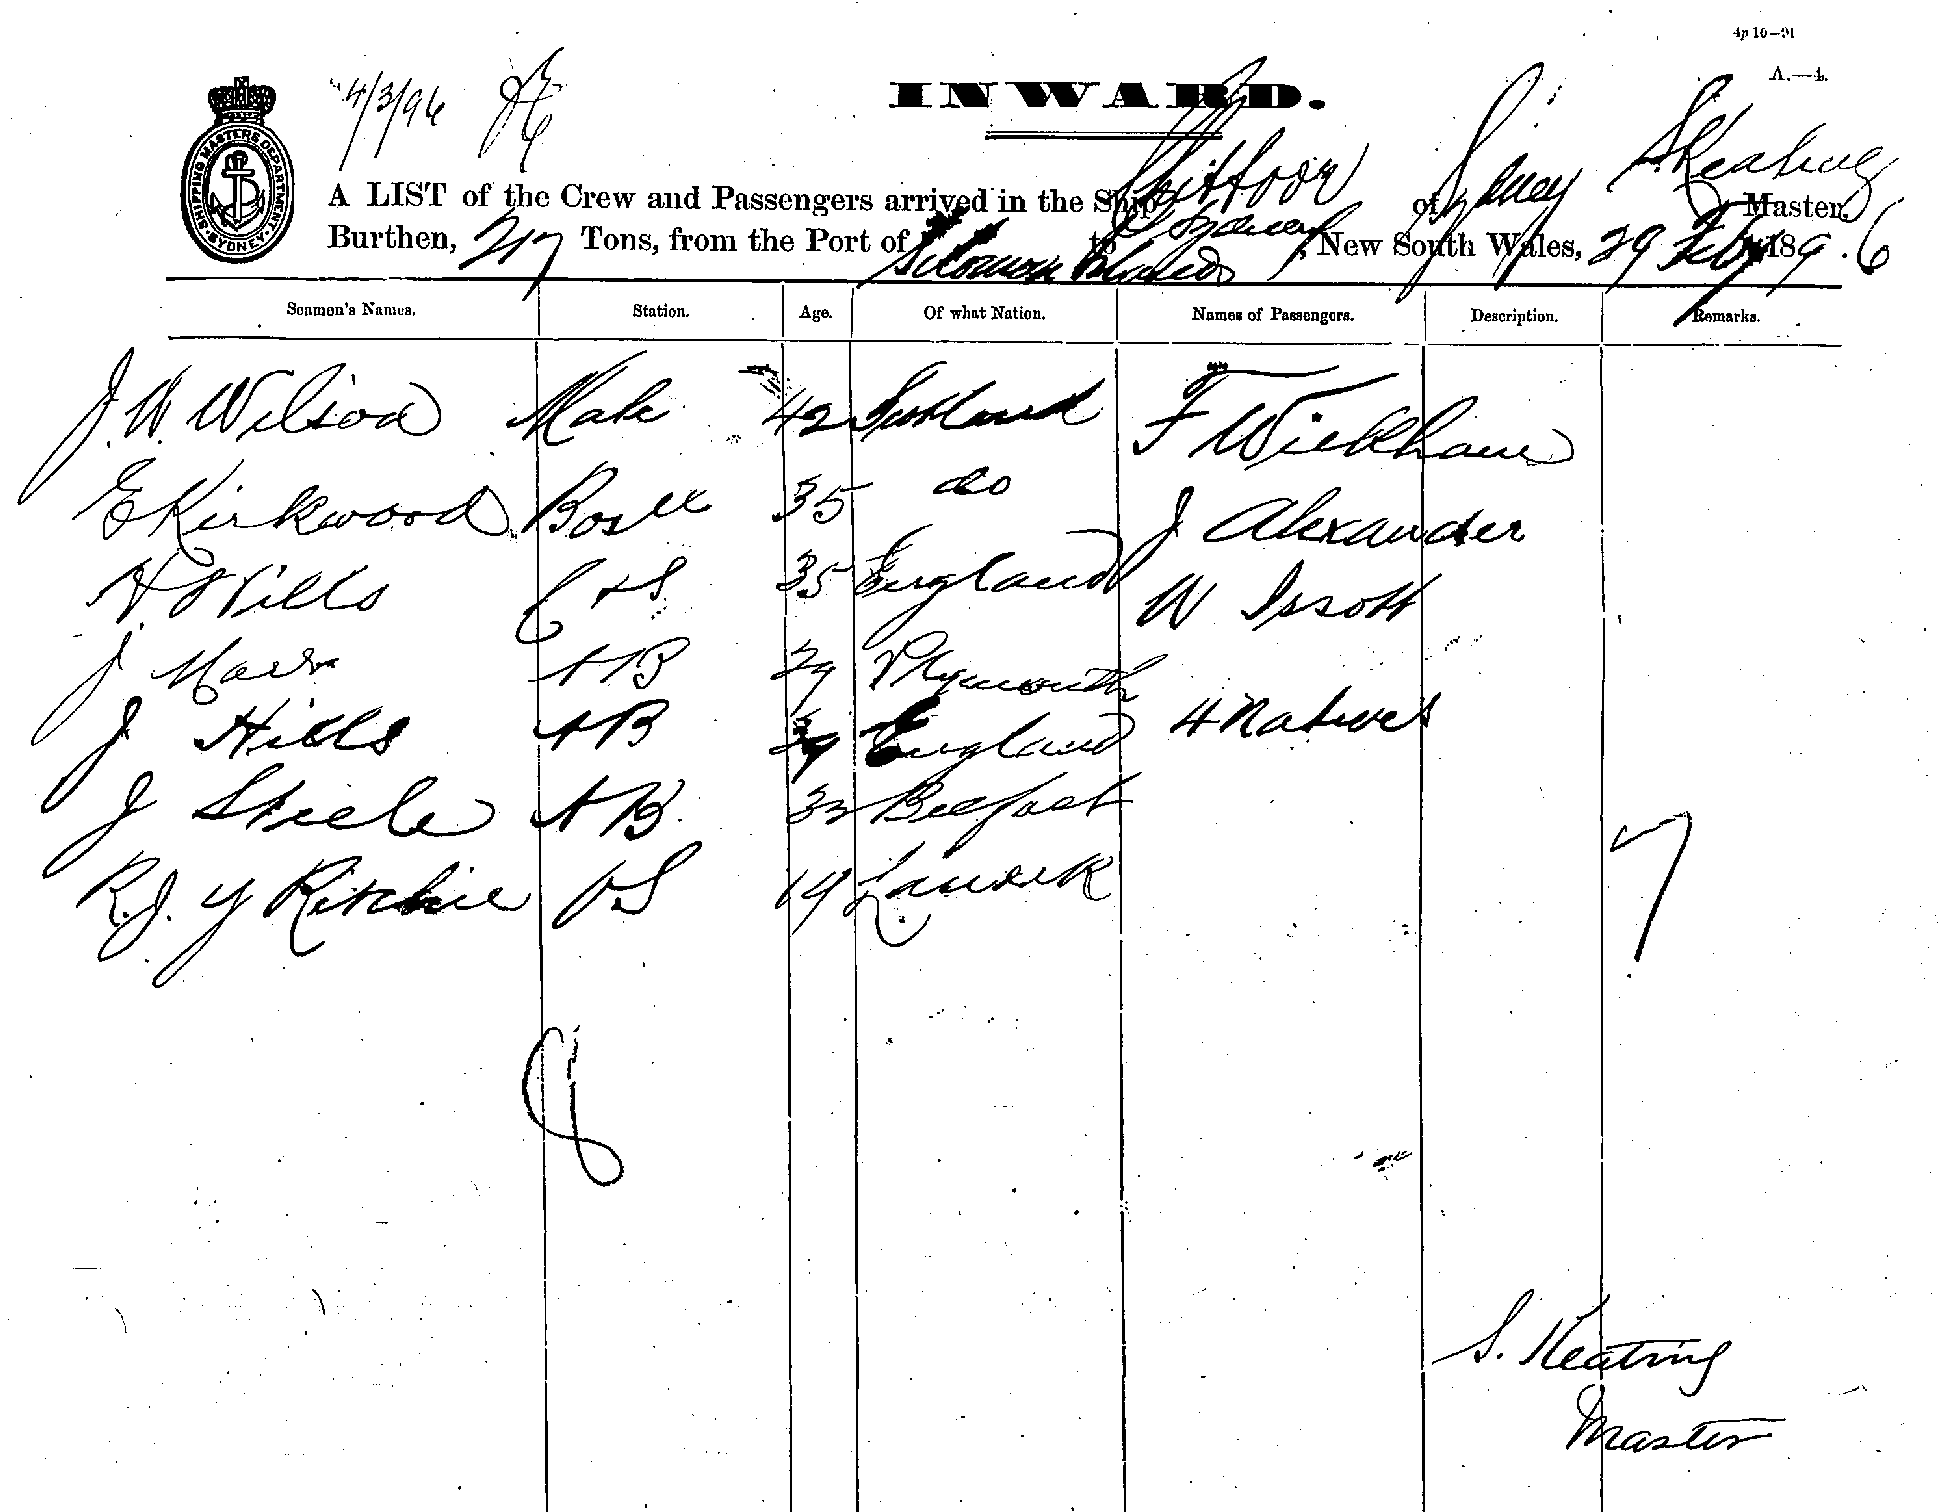 4p 10—91
A.—4.
4/3/96
INWARD.
SHIPPING MASTERS DEPARTMENT SYDNEY
A LIST of the Crew and Passengers arrived in the Ship Chittoor of Sydney S Keating Master.
Burthen, 217 Tons, from the Port of Solomon Islands to Sydney, New South Wales, 29 Feby 1896
Seamen's Names. Station. Age. Of what Nation. Names of Passengers. Description. Remarks.
J. W. Wilson Mate 42 Scotland F Wickham
E Kirkwood 35 do J Alexander
H Wills C & S 35 England W Issott
J AB 29 Plymouth
J Hills AB 39 England 4 Natives
J Steele AB 32 Belfast
R. J. Y Ritchie OS 19
7
8
S. Keating
Master